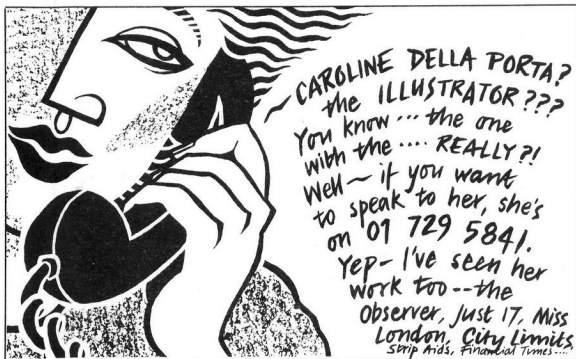 CAROLINE DELLA PORTA?
the ILLUSTRATOR???
You know... the one
with the .... REALLY?!
Well ~ if you want
to speak to her, she's
on 01 729 5841.
Yep - I've seen her
work too -- the
Observer, Just 17, Miss
London, City Limits,
Strip Aids, Financial Times...